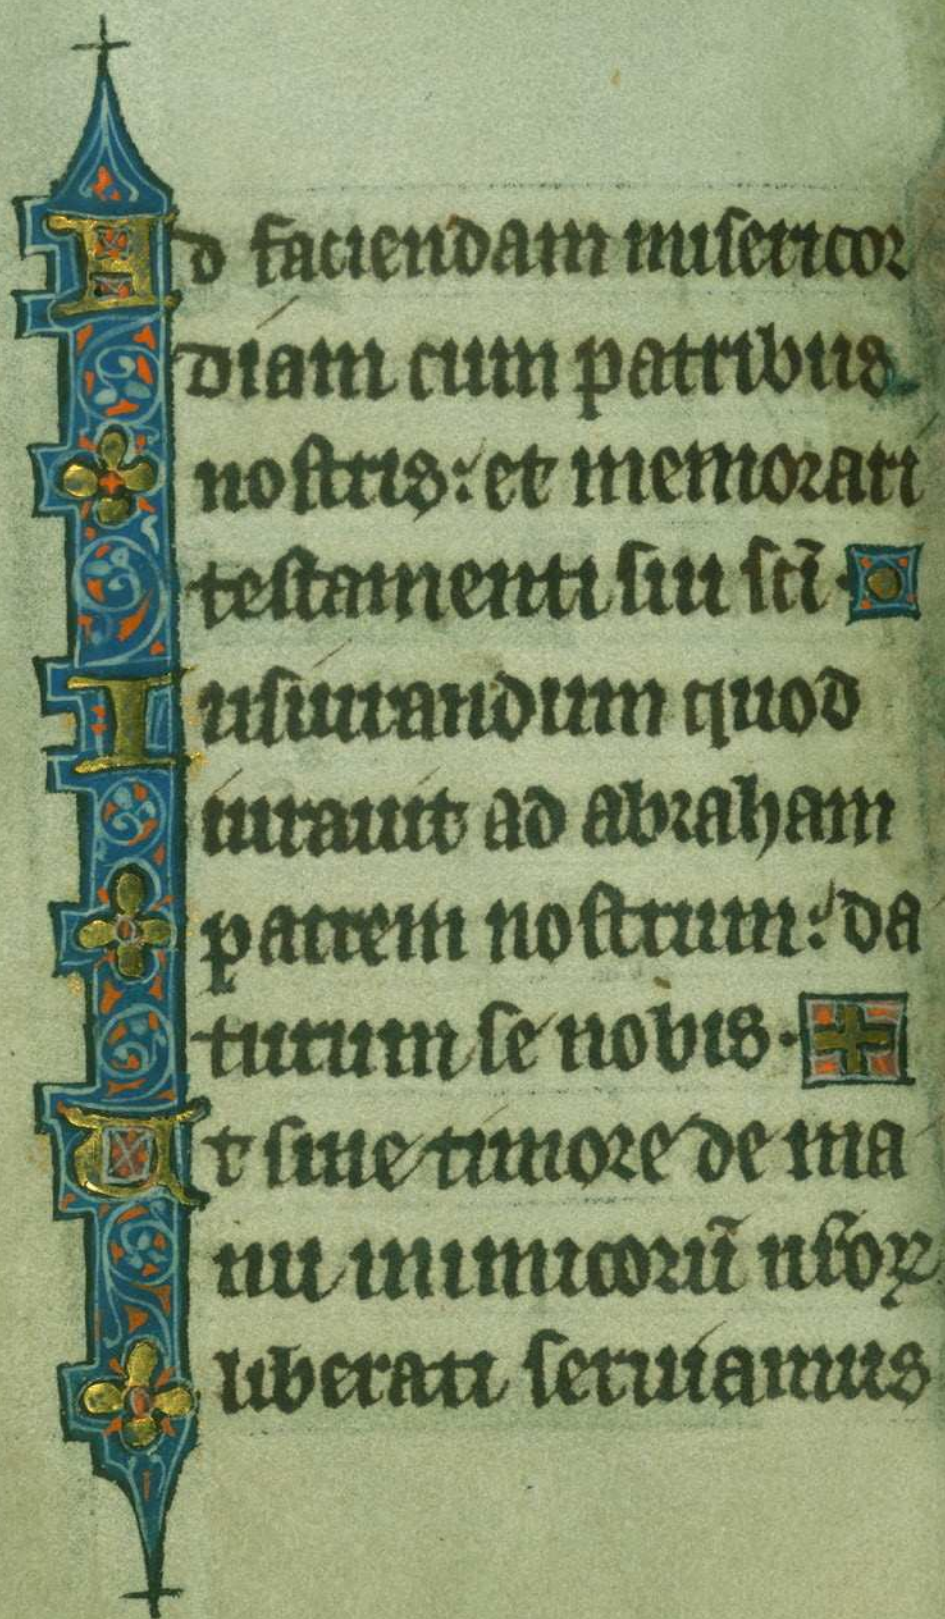 Ad faciendam misericor
diam cum patribus
nostris: et memorari
testamenti sui sci̅.
Iusiurandum quod
iurauit ad abraham
patrem nostrum: da
turum se nobis.
Ut sine timore de ma
nu inimicoru̅ nr̅oꝝ
liberati seruiamus